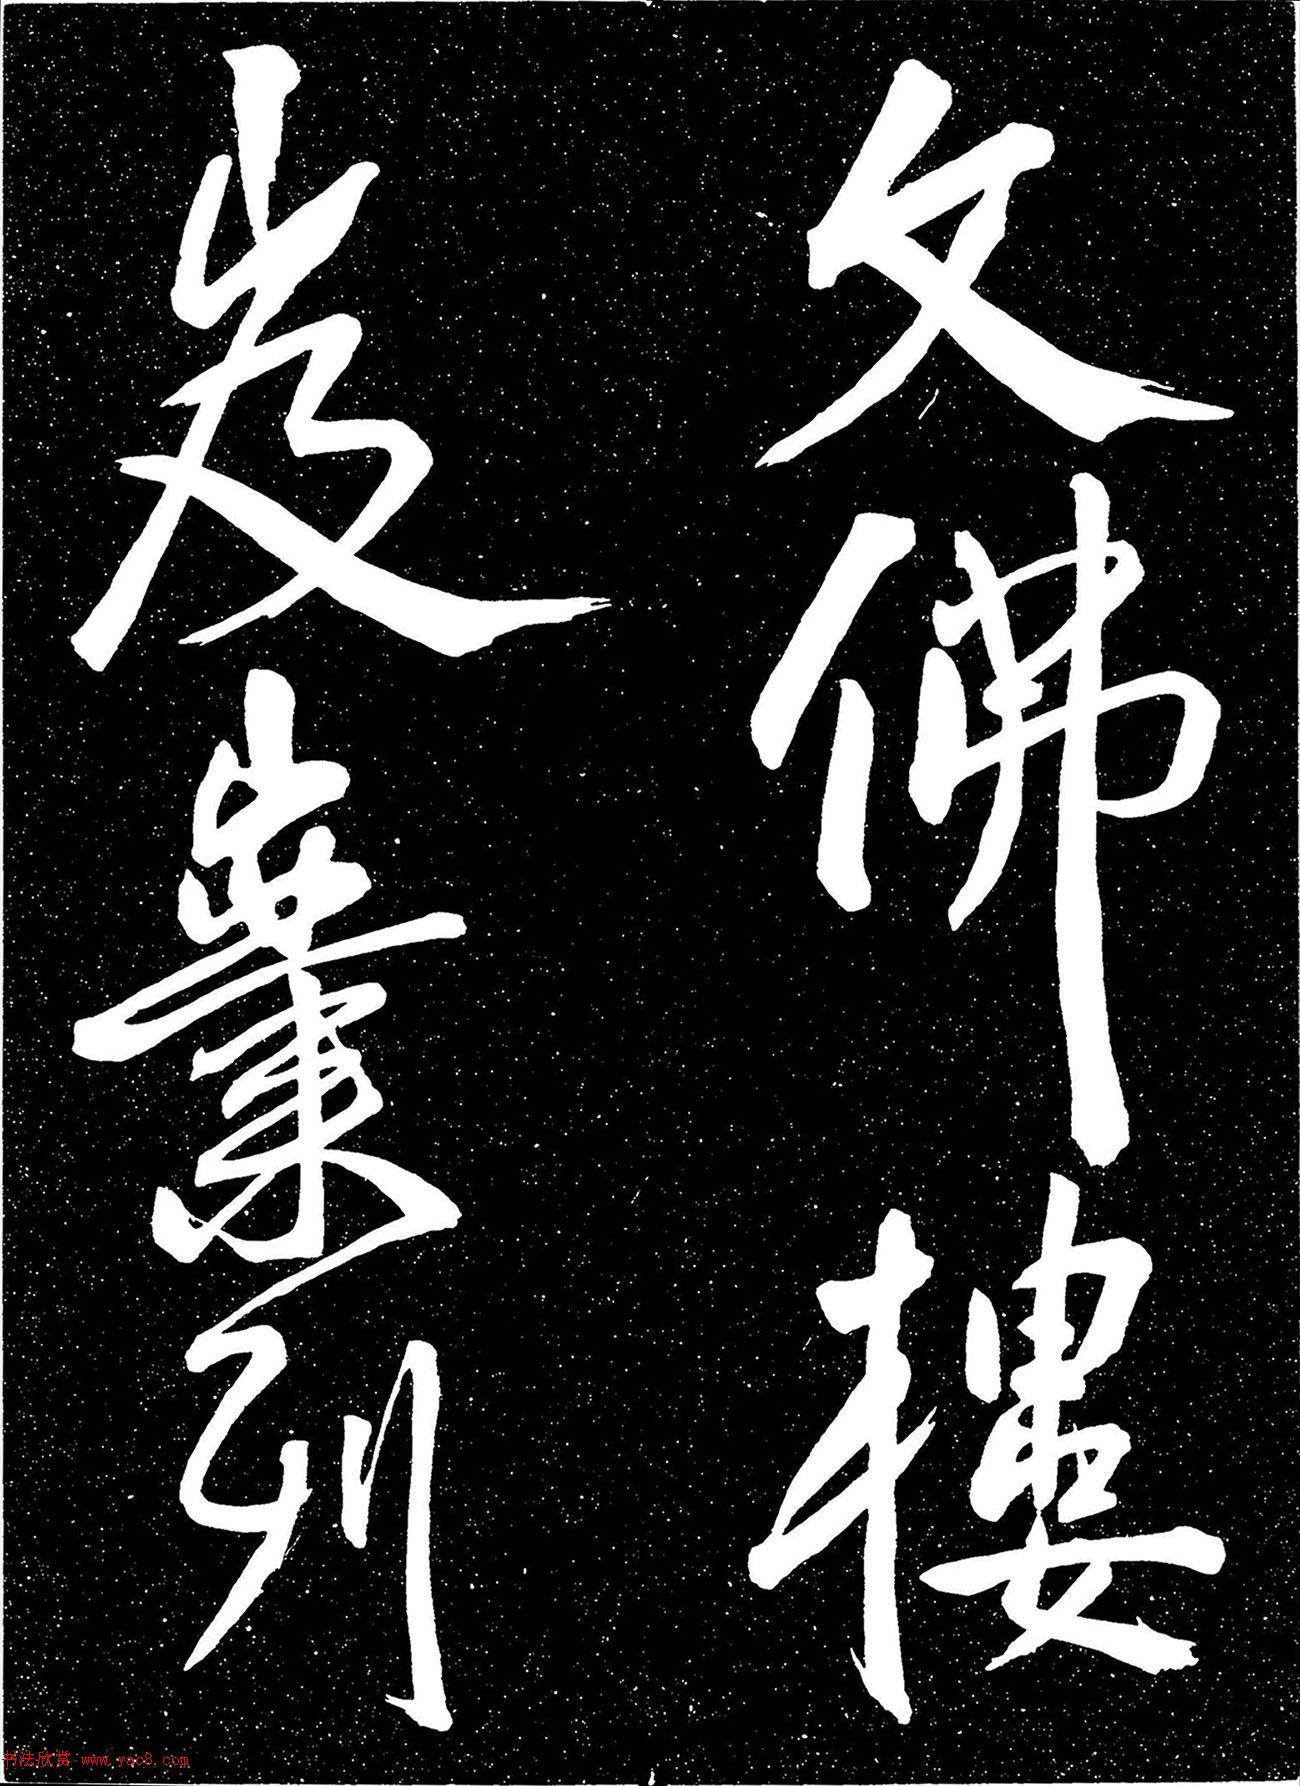 文佛樓
岌嶪列
书法欣赏 www.yac8.com